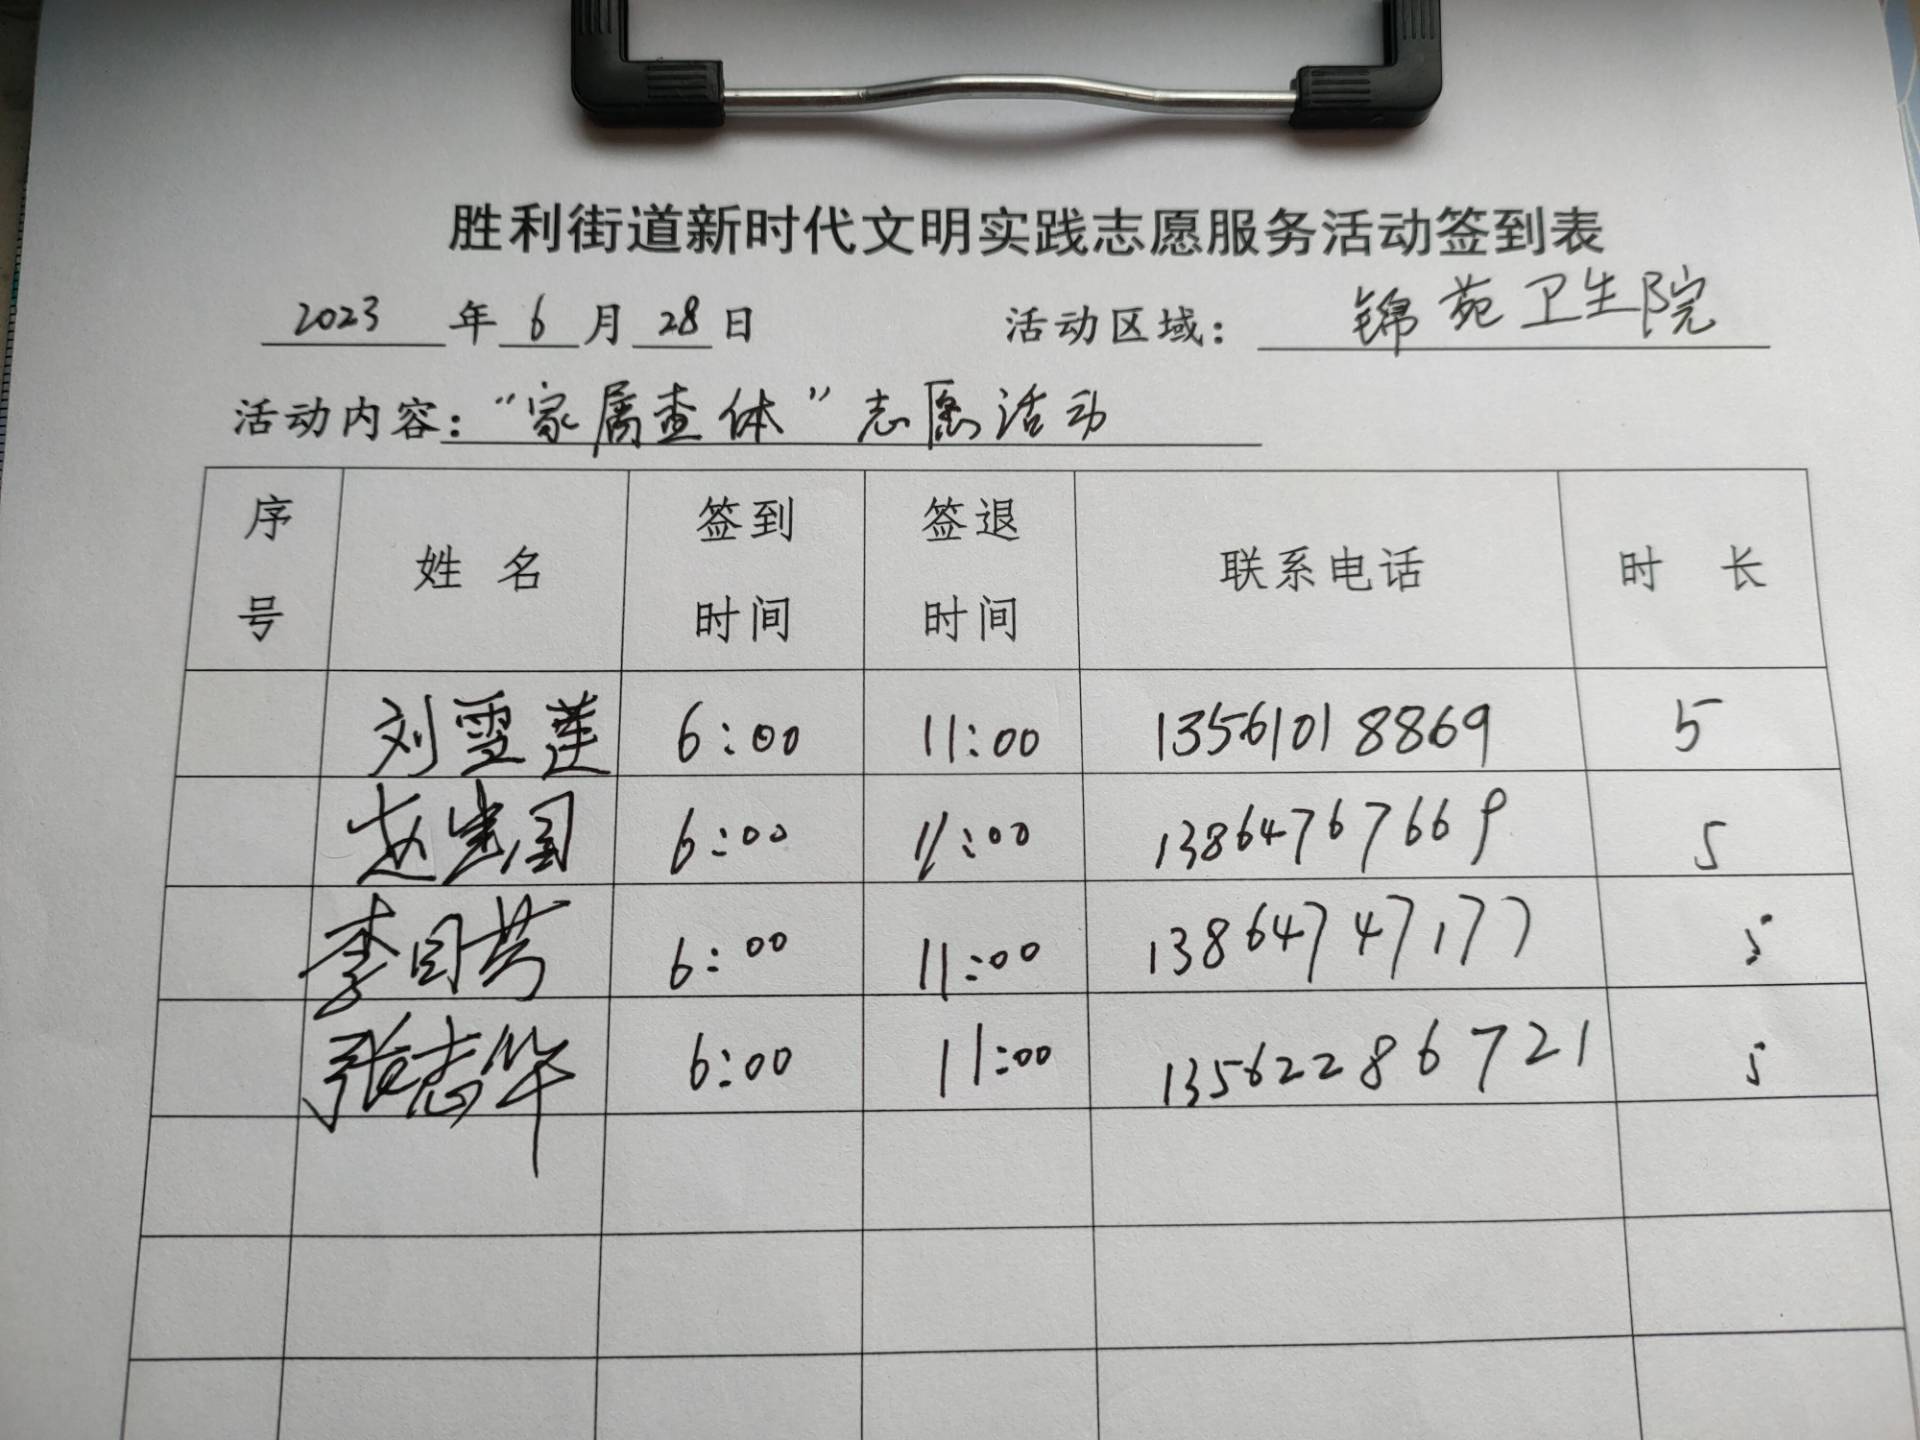 胜利街道新时代文明实践志愿服务活动签到表
2023 年 6 月 28 日 活动区域: 锦苑卫生院
活动内容: “家属查体”志愿活动
序号 姓名 签到时间 签退时间 联系电话 时长
刘雪莲 6:00 11:00 13561018869 5
赵国 6:00 11:00 13864767669 5
李目芳 6:00 11:00 13864747177 5
张志华 6:00 11:00 13562286721 5